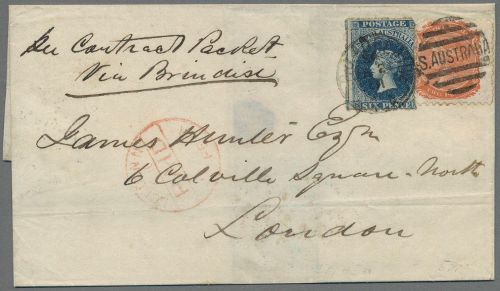 Per Contract Packet
Via Brindisi
POSTAGE
SOUTH AUSTRALIA
SIX PENCE
S.AUSTRALIA
James Hunter Esqr
6 Colville Square North
London
PAID